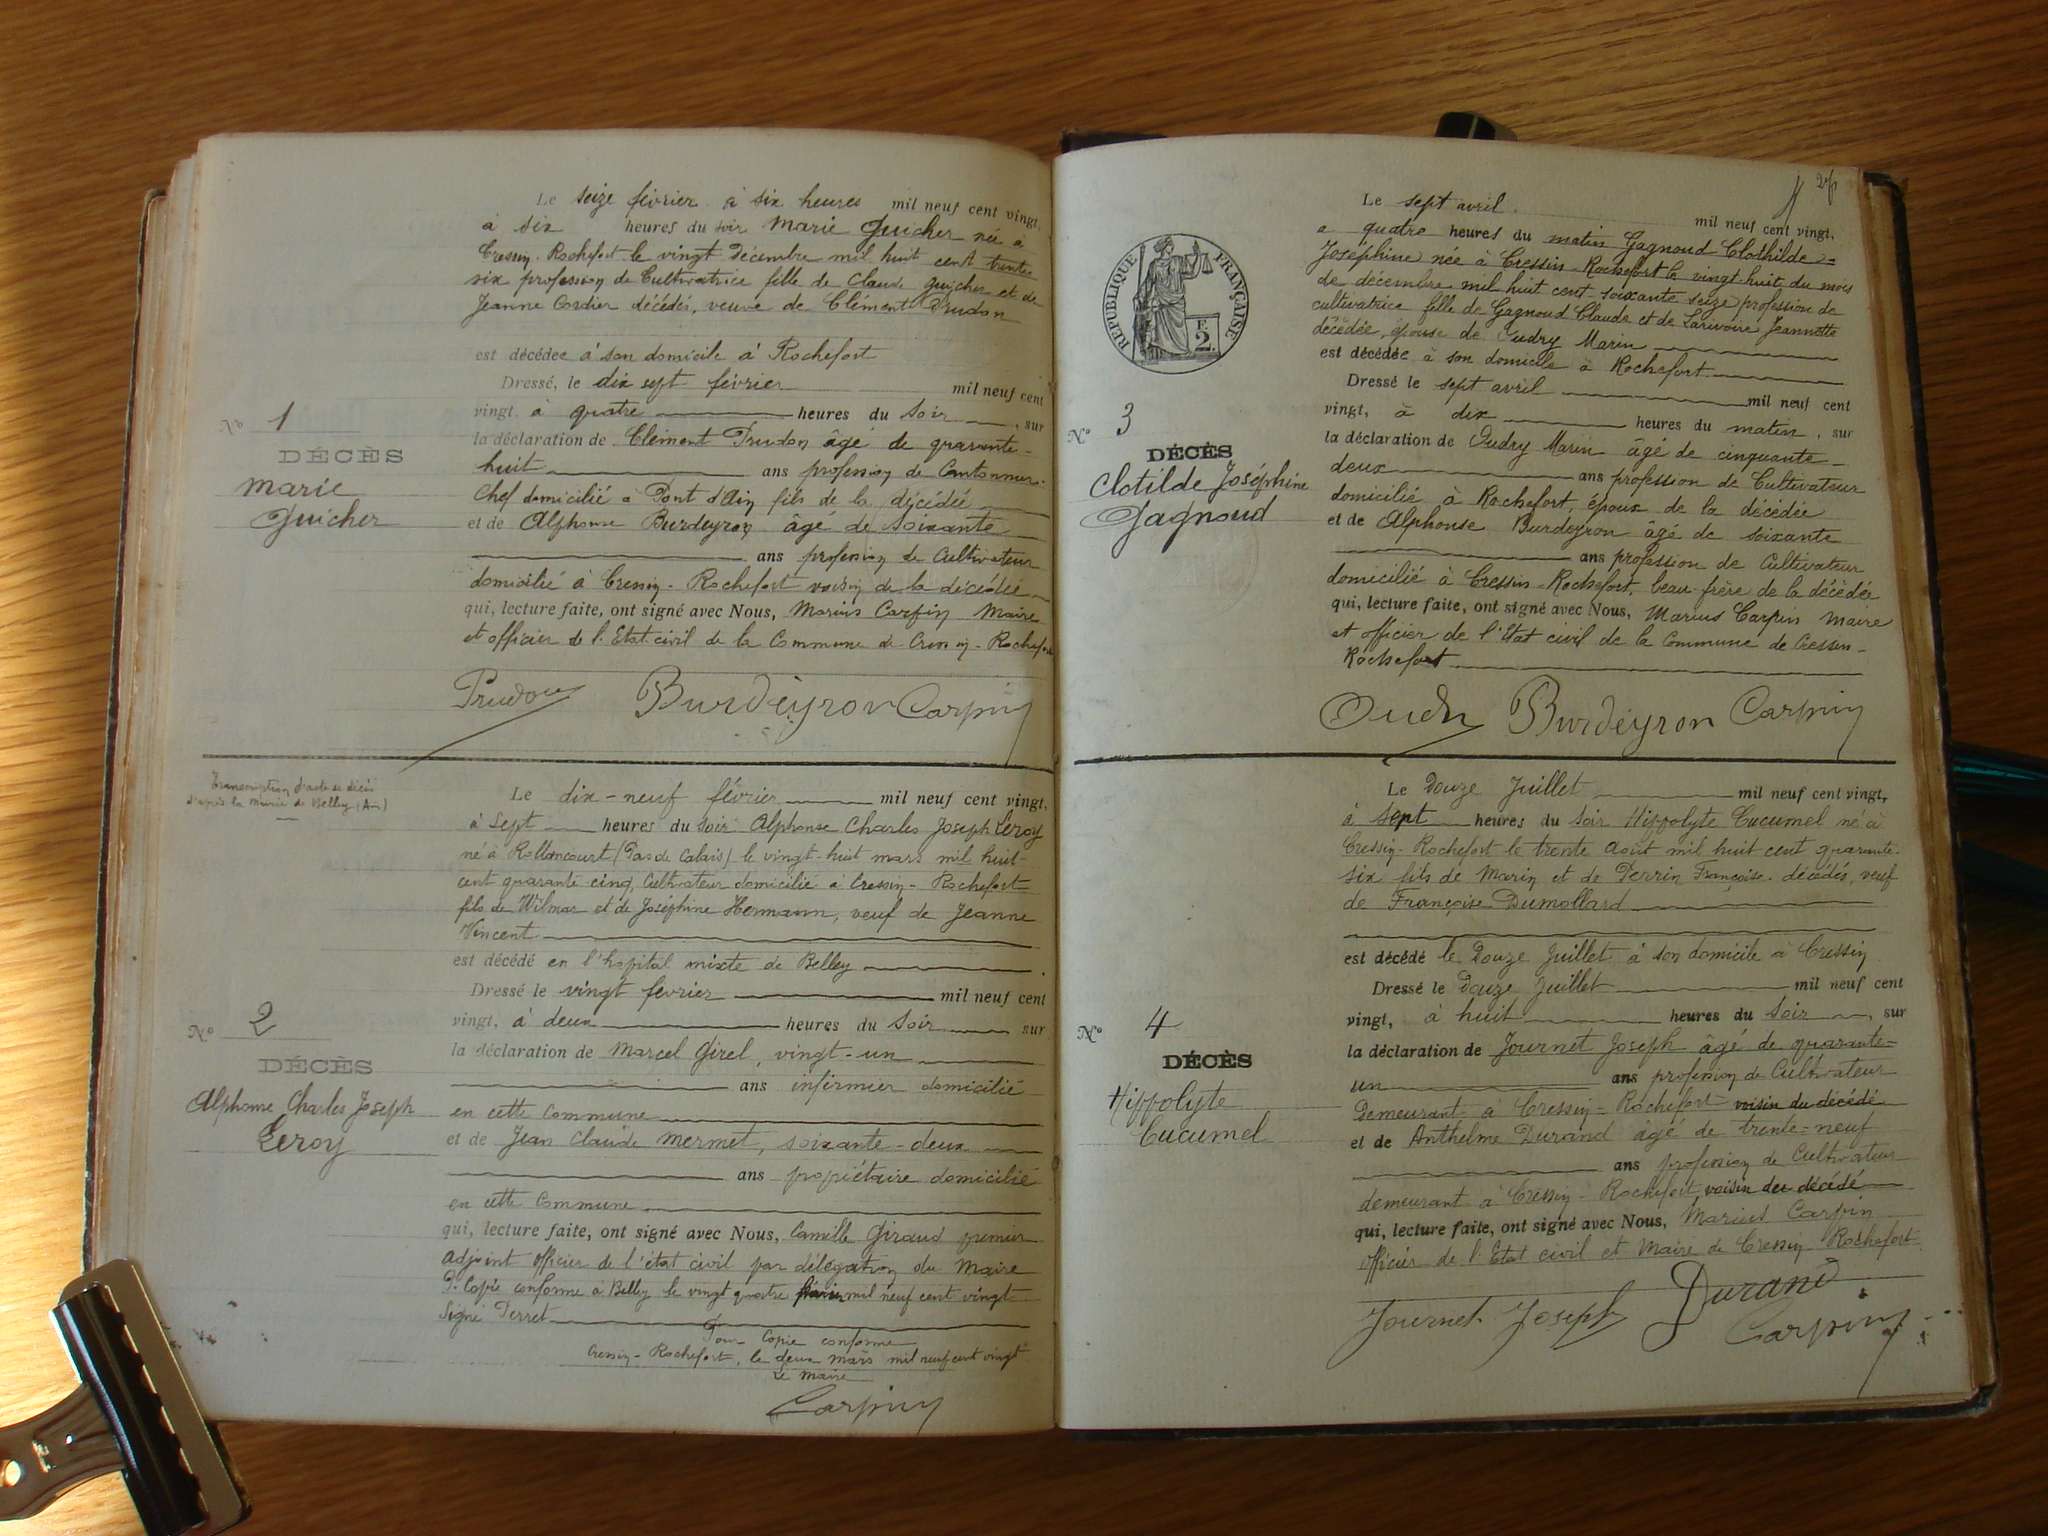 Le seize février à six heures mil neuf cent vingt,
à six heures du soir Marie Guicher née à
Cressin-Rochefort le vingt Décembre mil huit cent trente
six profession de Cultivatrice fille de Claude Guicher et de
Jeanne Cordier décédés, veuve de Clément Prudon
est décédée à son domicile à Rochefort
Dressé, le dix sept février mil neuf cent
vingt, à quatre heures du soir, sur
la déclaration de Clément Prudon âgé de quarante-
huit ans profession de Cantonnier-
Chef domicilié à Pont d'Ain fils de la décédée
et de Alphonse Burdeyron âgé de soixante
ans profession de Cultivateur
domicilié à Cressin-Rochefort voisin de la décédée
qui, lecture faite, ont signé avec Nous, Marius Carpin Maire
et officier de l'Etat civil de la Commune de Cressin-Rochefort
Prudon Burdeyron Carpin
N° 1
DÉCÈS
Marie
Guicher
Transcription d'acte de décès
d'après la Mairie de Belley (Ain)
Le dix-neuf février mil neuf cent vingt,
à sept heures du soir Alphonse Charles Joseph Leroy
né à Rollancourt (Pas de Calais) le vingt-huit mars mil huit-
cent quarante cinq, Cultivateur domicilié à Cressin-Rochefort
fils de Wilmar et de Joséphine Hermann, veuf de Jeanne
Vincent
est décédé en l'hôpital mixte de Belley
Dressé le vingt février mil neuf cent
vingt, à deux heures du soir sur
la déclaration de Marcel Girel, vingt-un
ans infirmier domicilié
en cette commune
et de Jean Claude Mermet, soixante-deux
ans propiétaire domicilié
en cette commune
qui, lecture faite, ont signé avec Nous, Camille Giraud premier
adjoint officier de l'état civil par délégation du Maire
Pr Copie conforme à Belley le vingt quatre février mil neuf cent vingt
Signé Perret
Pour Copie conforme
Cressin-Rochefort, le deux mars mil neuf cent vingt
Le Maire
Carpin
N° 2
DÉCÈS
Alphonse Charles Joseph
Leroy
Le sept avril mil neuf cent vingt,
a quatre heures du matin Gagnoud Clothilde=
Joséphine née à Cressin-Rochefort le vingt-huit du mois
de décembre mil huit cent soixante seize profession de
cultivatrice fille de Gagnoud Claude et de Larivoire Jeannette
décédée, épouse de Oudry Marin
est décédée à son domicile à Rochefort
Dressé le sept avril mil neuf cent
vingt, à dix heures du matin, sur
la déclaration de Oudry Marin âgé de cinquante-
deux ans profession de Cultivateur
domicilié à Rochefort, époux de la décédée
et de Alphonse Burdeyron âgé de soixante
ans profession de Cultivateur
domicilié à Cressin-Rochefort, beau-frère de la décédée
qui, lecture faite, ont signé avec Nous, Marius Carpin Maire
et officier de l'Etat civil de la Commune de Cressin-
Rochefort
Oudry Burdeyron Carpin
RÉPUBLIQUE FRANÇAISE
F.
2.
N° 3
DÉCÈS
Clotilde Joséphine
Gagnoud
Le Douze Juillet mil neuf cent vingt,
à sept heures du soir Hippolyte Cucumel né à
Cressin-Rochefort le trente août mil huit cent quarante-
six fils de Marin et de Perrin Françoise décédés, veuf
de Françoise Dumollard
est décédé le Douze Juillet à son domicile à Cressin
Dressé le Douze Juillet mil neuf cent
vingt, à huit heures du soir, sur
la déclaration de Journet Joseph âgé de quarante=
un ans profession de Cultivateur
Demeurant à Cressin-Rochefort voisin du décédé
et de Anthelme Durand âgé de trente=neuf
ans profession de Cultivateur
demeurant à Cressin-Rochefort voisin du décédé
qui, lecture faite, ont signé avec Nous, Marius Carpin
officier de l'Etat civil et Maire de Cressin-Rochefort
Journet Joseph Durand
Carpin
N° 4
DÉCÈS
Hippolyte
Cucumel